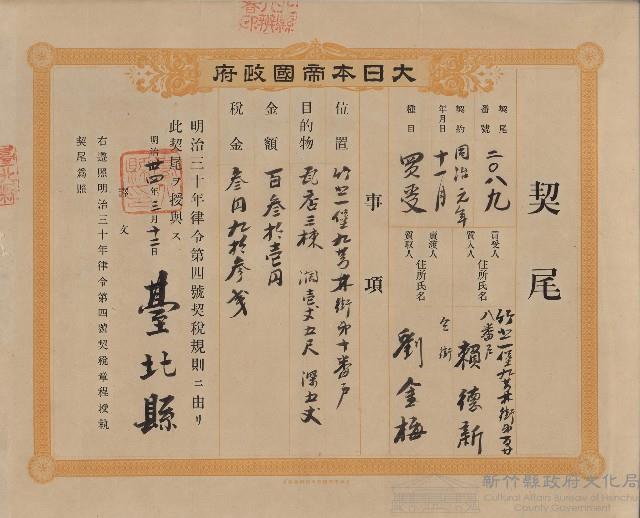 大日本帝國政府
契尾
契尾番號
二〇八九
契約年月日
同治元年十一月
種目
買受
買受人
質入人
住所氏名
竹北一堡九芎林街第百廿
八番戶
賴德新
賣渡人
質取人
住所氏名
仝街
劉金梅
事項
位置
竹北一堡九芎林街第十番戶
目的物
瓦店三棟 濶壹丈五尺 深五丈
金額
百參拾壹円
稅金
參円九拾參戔
明治三十年律令第四號契稅規則ニ由リ
此契尾ヲ授與ス
明治卅四年三月十二日
臺北縣
譯文
右遵照明治三十年律令第四號契稅章程授執
契尾為照
新竹縣政府文化局
Cultural Affairs Bureau of Hsinchu
County Government